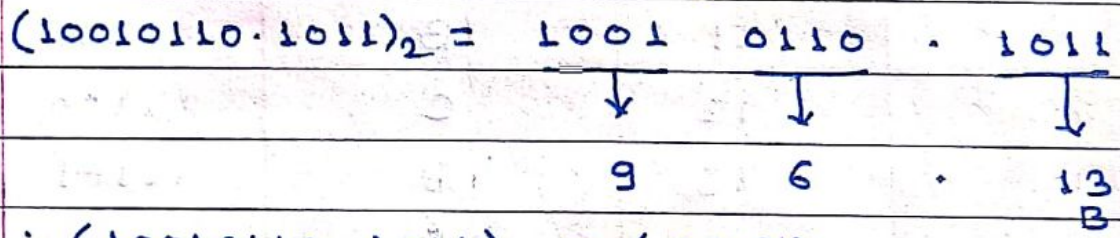 (10010110.1011)₂ = 1001 0110 . 1011
9 6 . 13
B